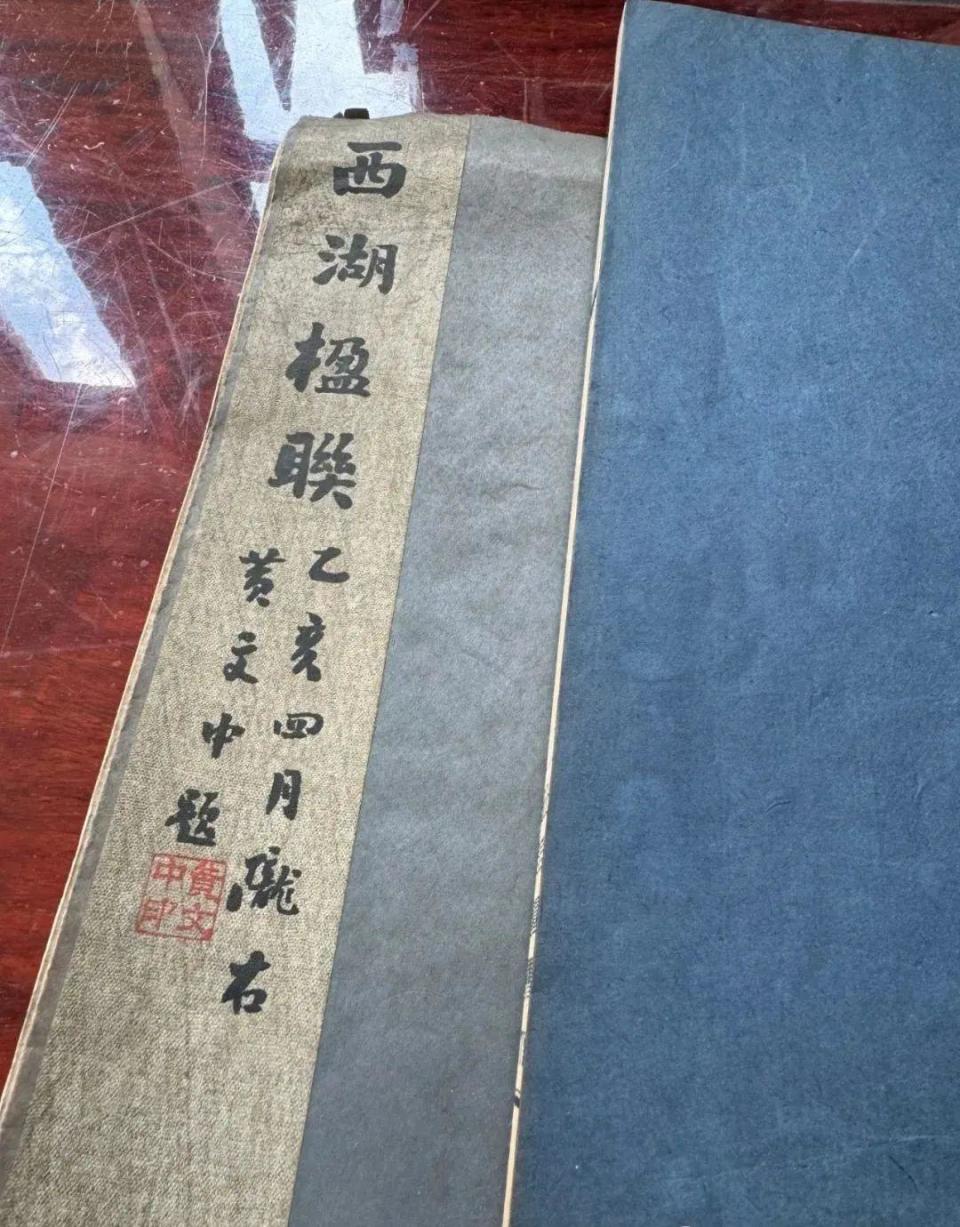 西湖楹聯
乙亥四月隴右
黃文中題
黃文中印